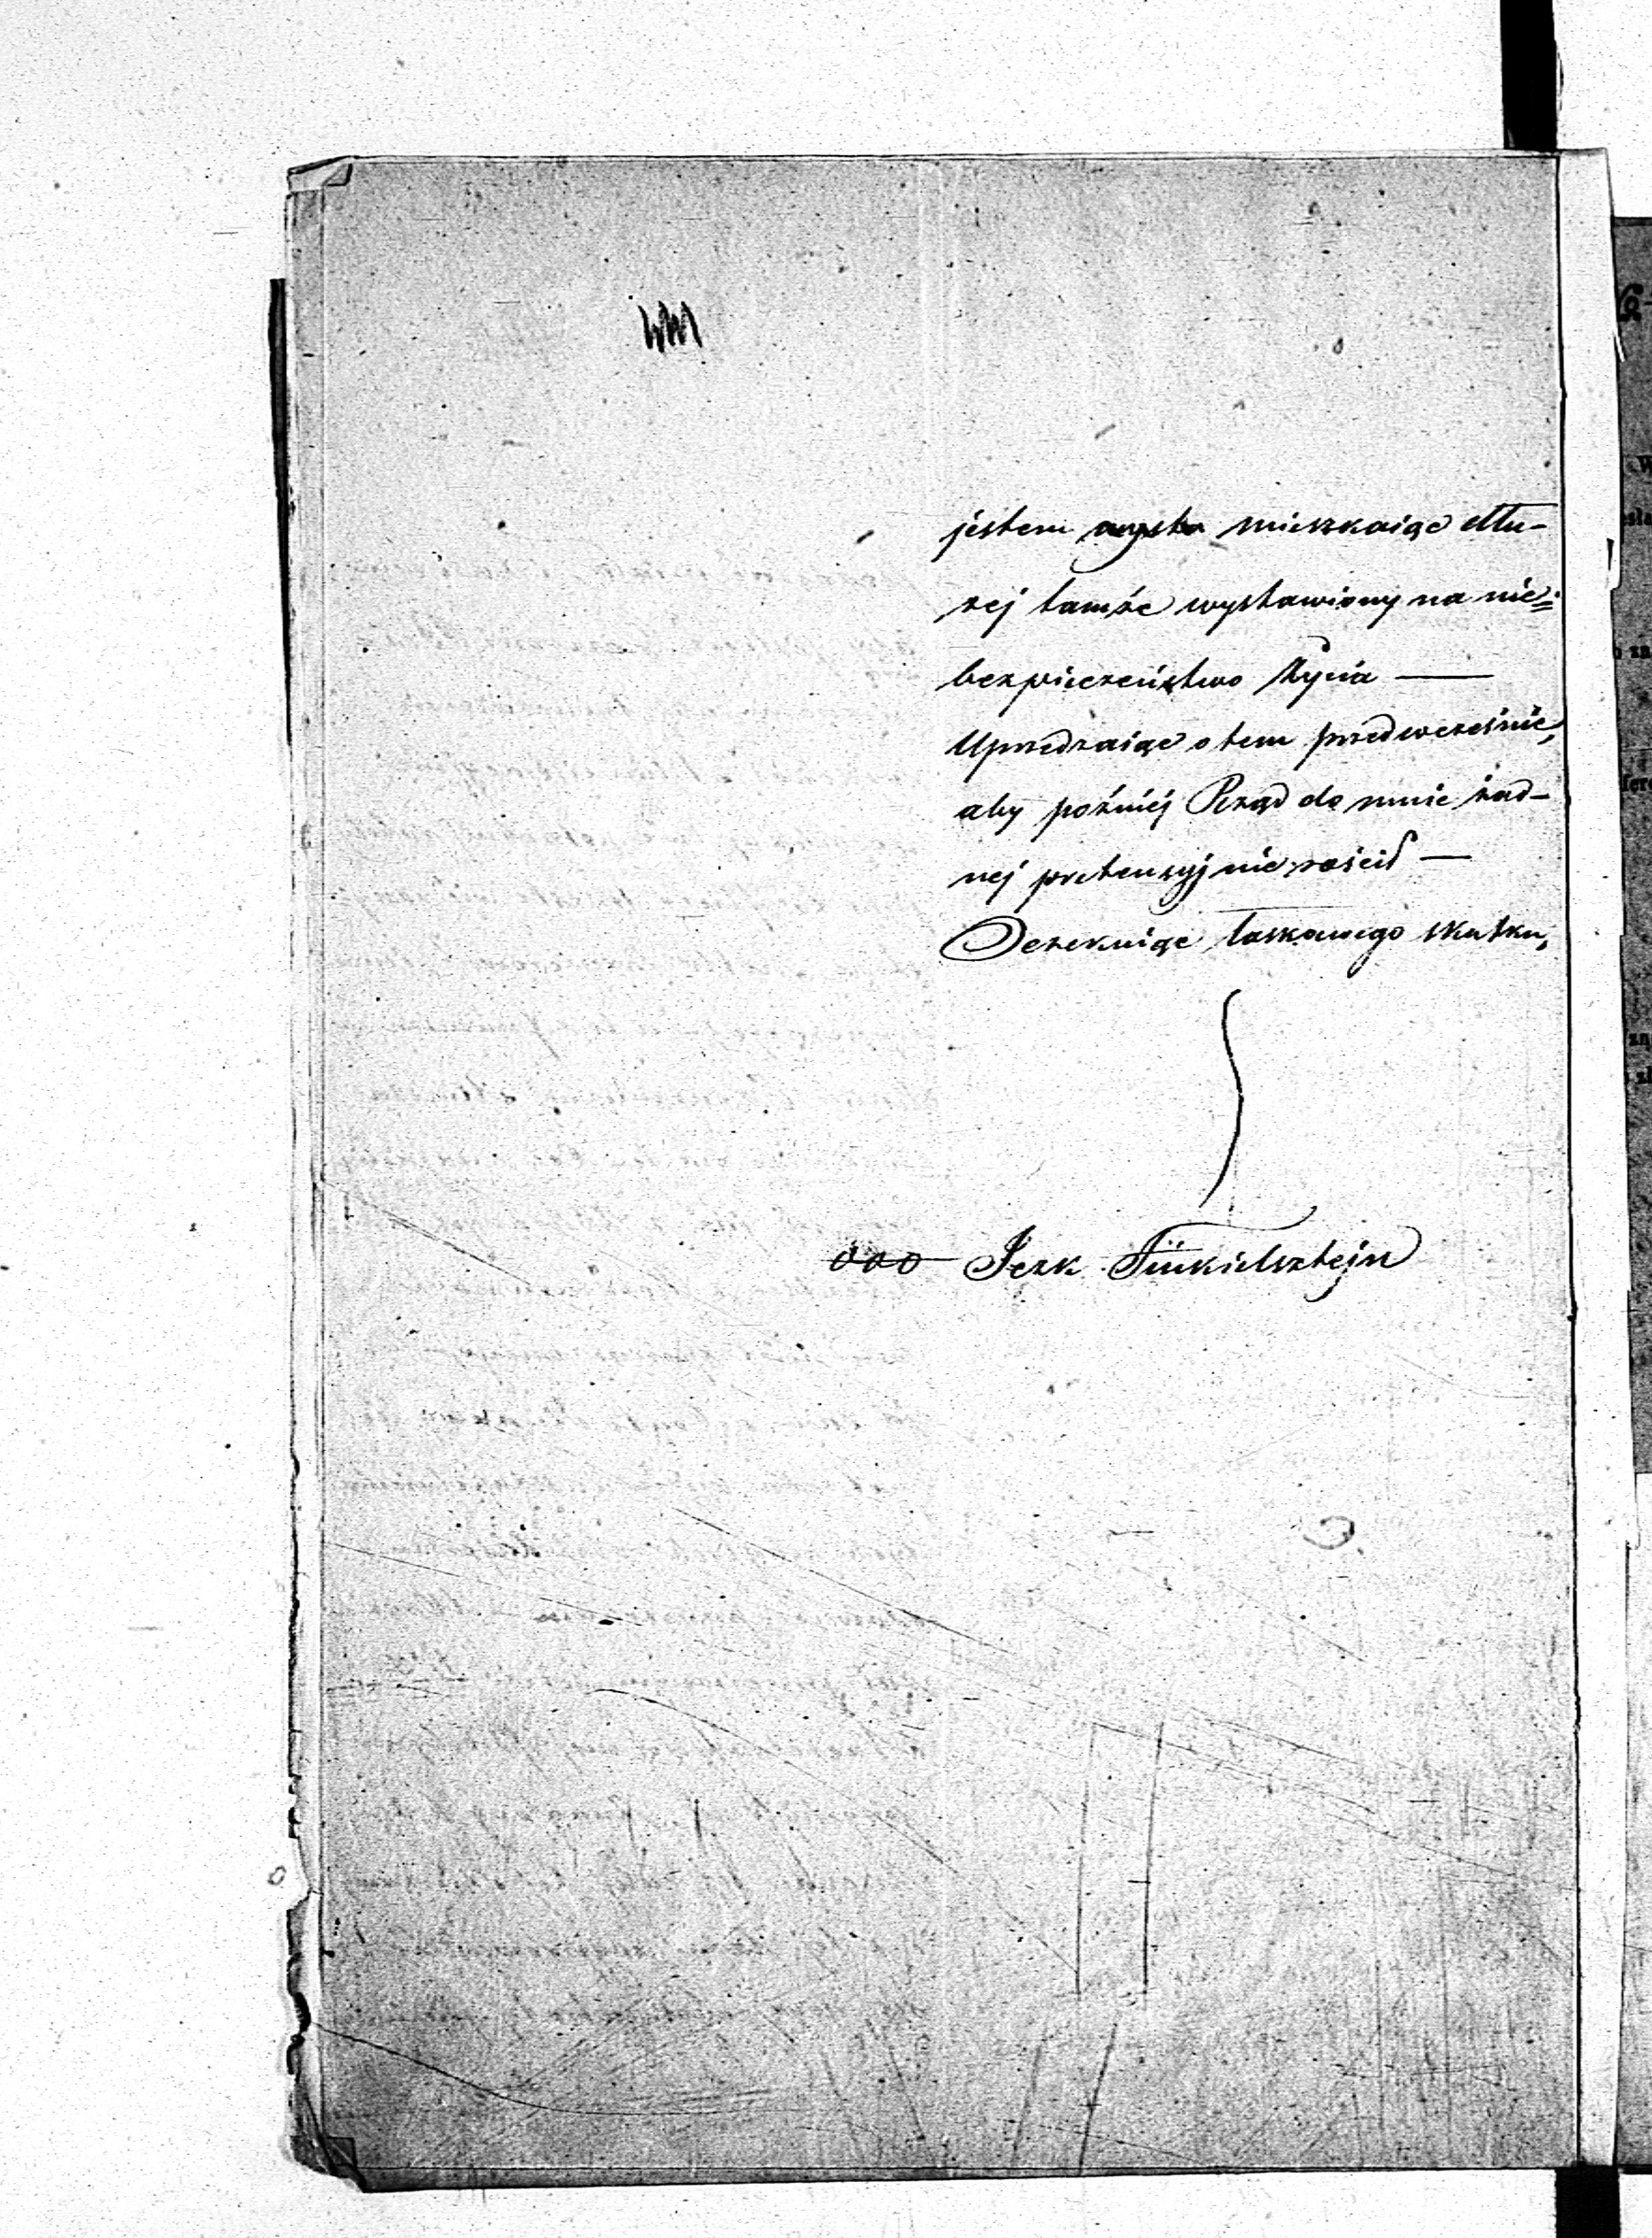 jestem mieszkaiąc dłu-
zej tamże wystawiony na nie=
bezpieczeństwo życia —
Uprzedzaiąc o tem przedwcześnie,
aby poźniej Rząd do mnie żad-
nej pretensyj nie rościł —
Oczekuiąc łaskawego skutku,
ooo Iczk Finkielsztejn